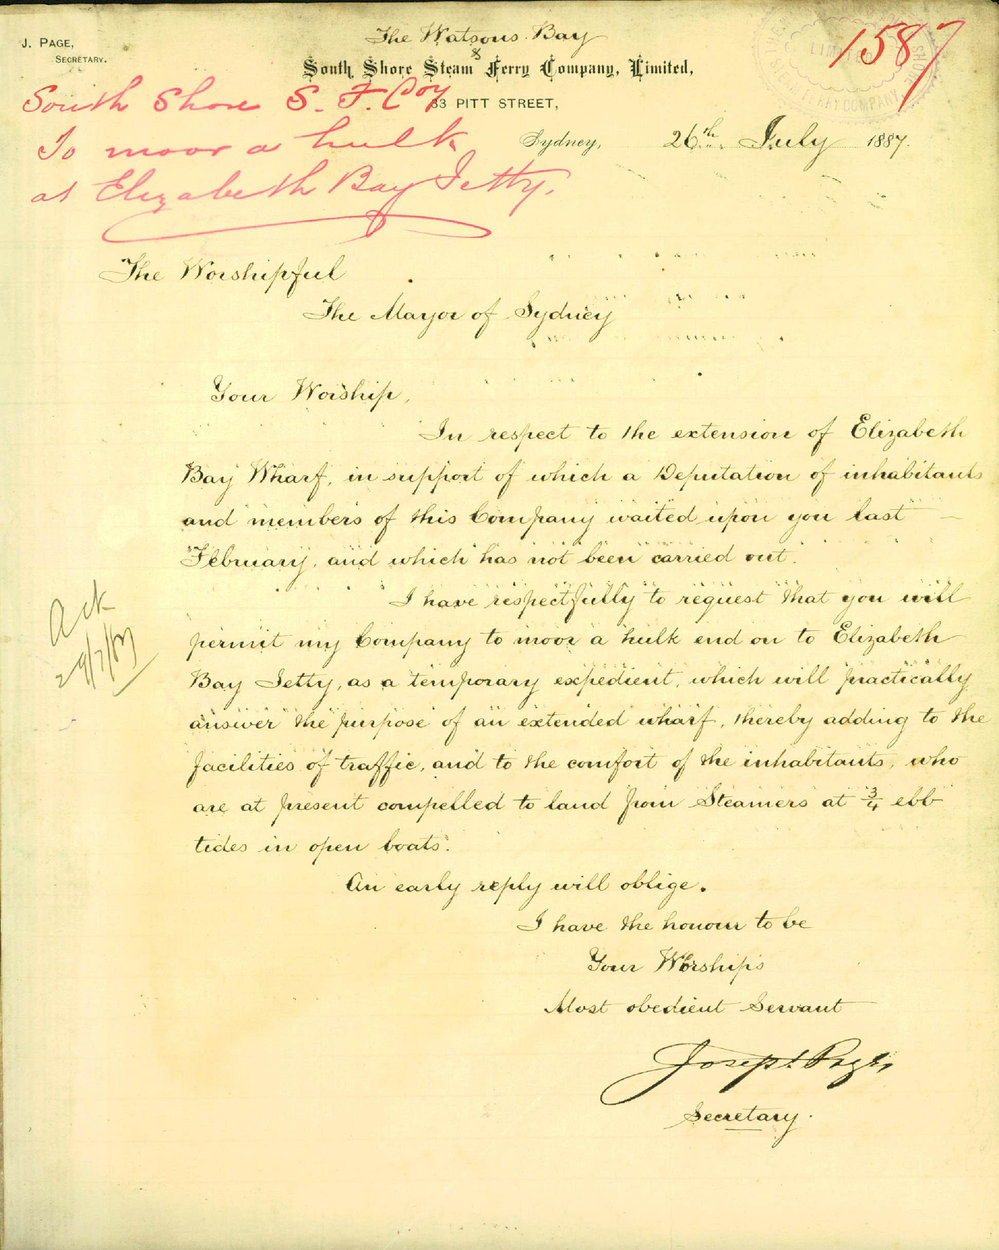 J. PAGE,
SECRETARY.
The Watsons Bay
&
South Shore Steam Ferry Company, Limited,
33 PITT STREET,
1587
LIMITED
SHORE
FERRY COMPANY,
South Shore S. F. Coy
To moor a hulk
at Elizabeth Bay Jetty.
Sydney, 26th July 1887.
The Worshipful
The Mayor of Sydney
Your Worship,
In respect to the extension of Elizabeth
Bay Wharf, in support of which a Deputation of inhabitants
and members of this Company waited upon you last
February, and which has not been carried out.
I have respectfully to request that you will
permit my Company to moor a hulk end on to Elizabeth
Bay Jetty, as a temporary expedient, which will practically
answer the purpose of an extended wharf, thereby adding to the
facilities of traffic, and to the comfort of the inhabitants, who
are at present compelled to land from Steamers at 3/4 ebb
tides in open boats.
Ack
29/7/87
An early reply will oblige.
I have the honour to be
Your Worship's
Most obedient Servant
Joseph Page,
Secretary.